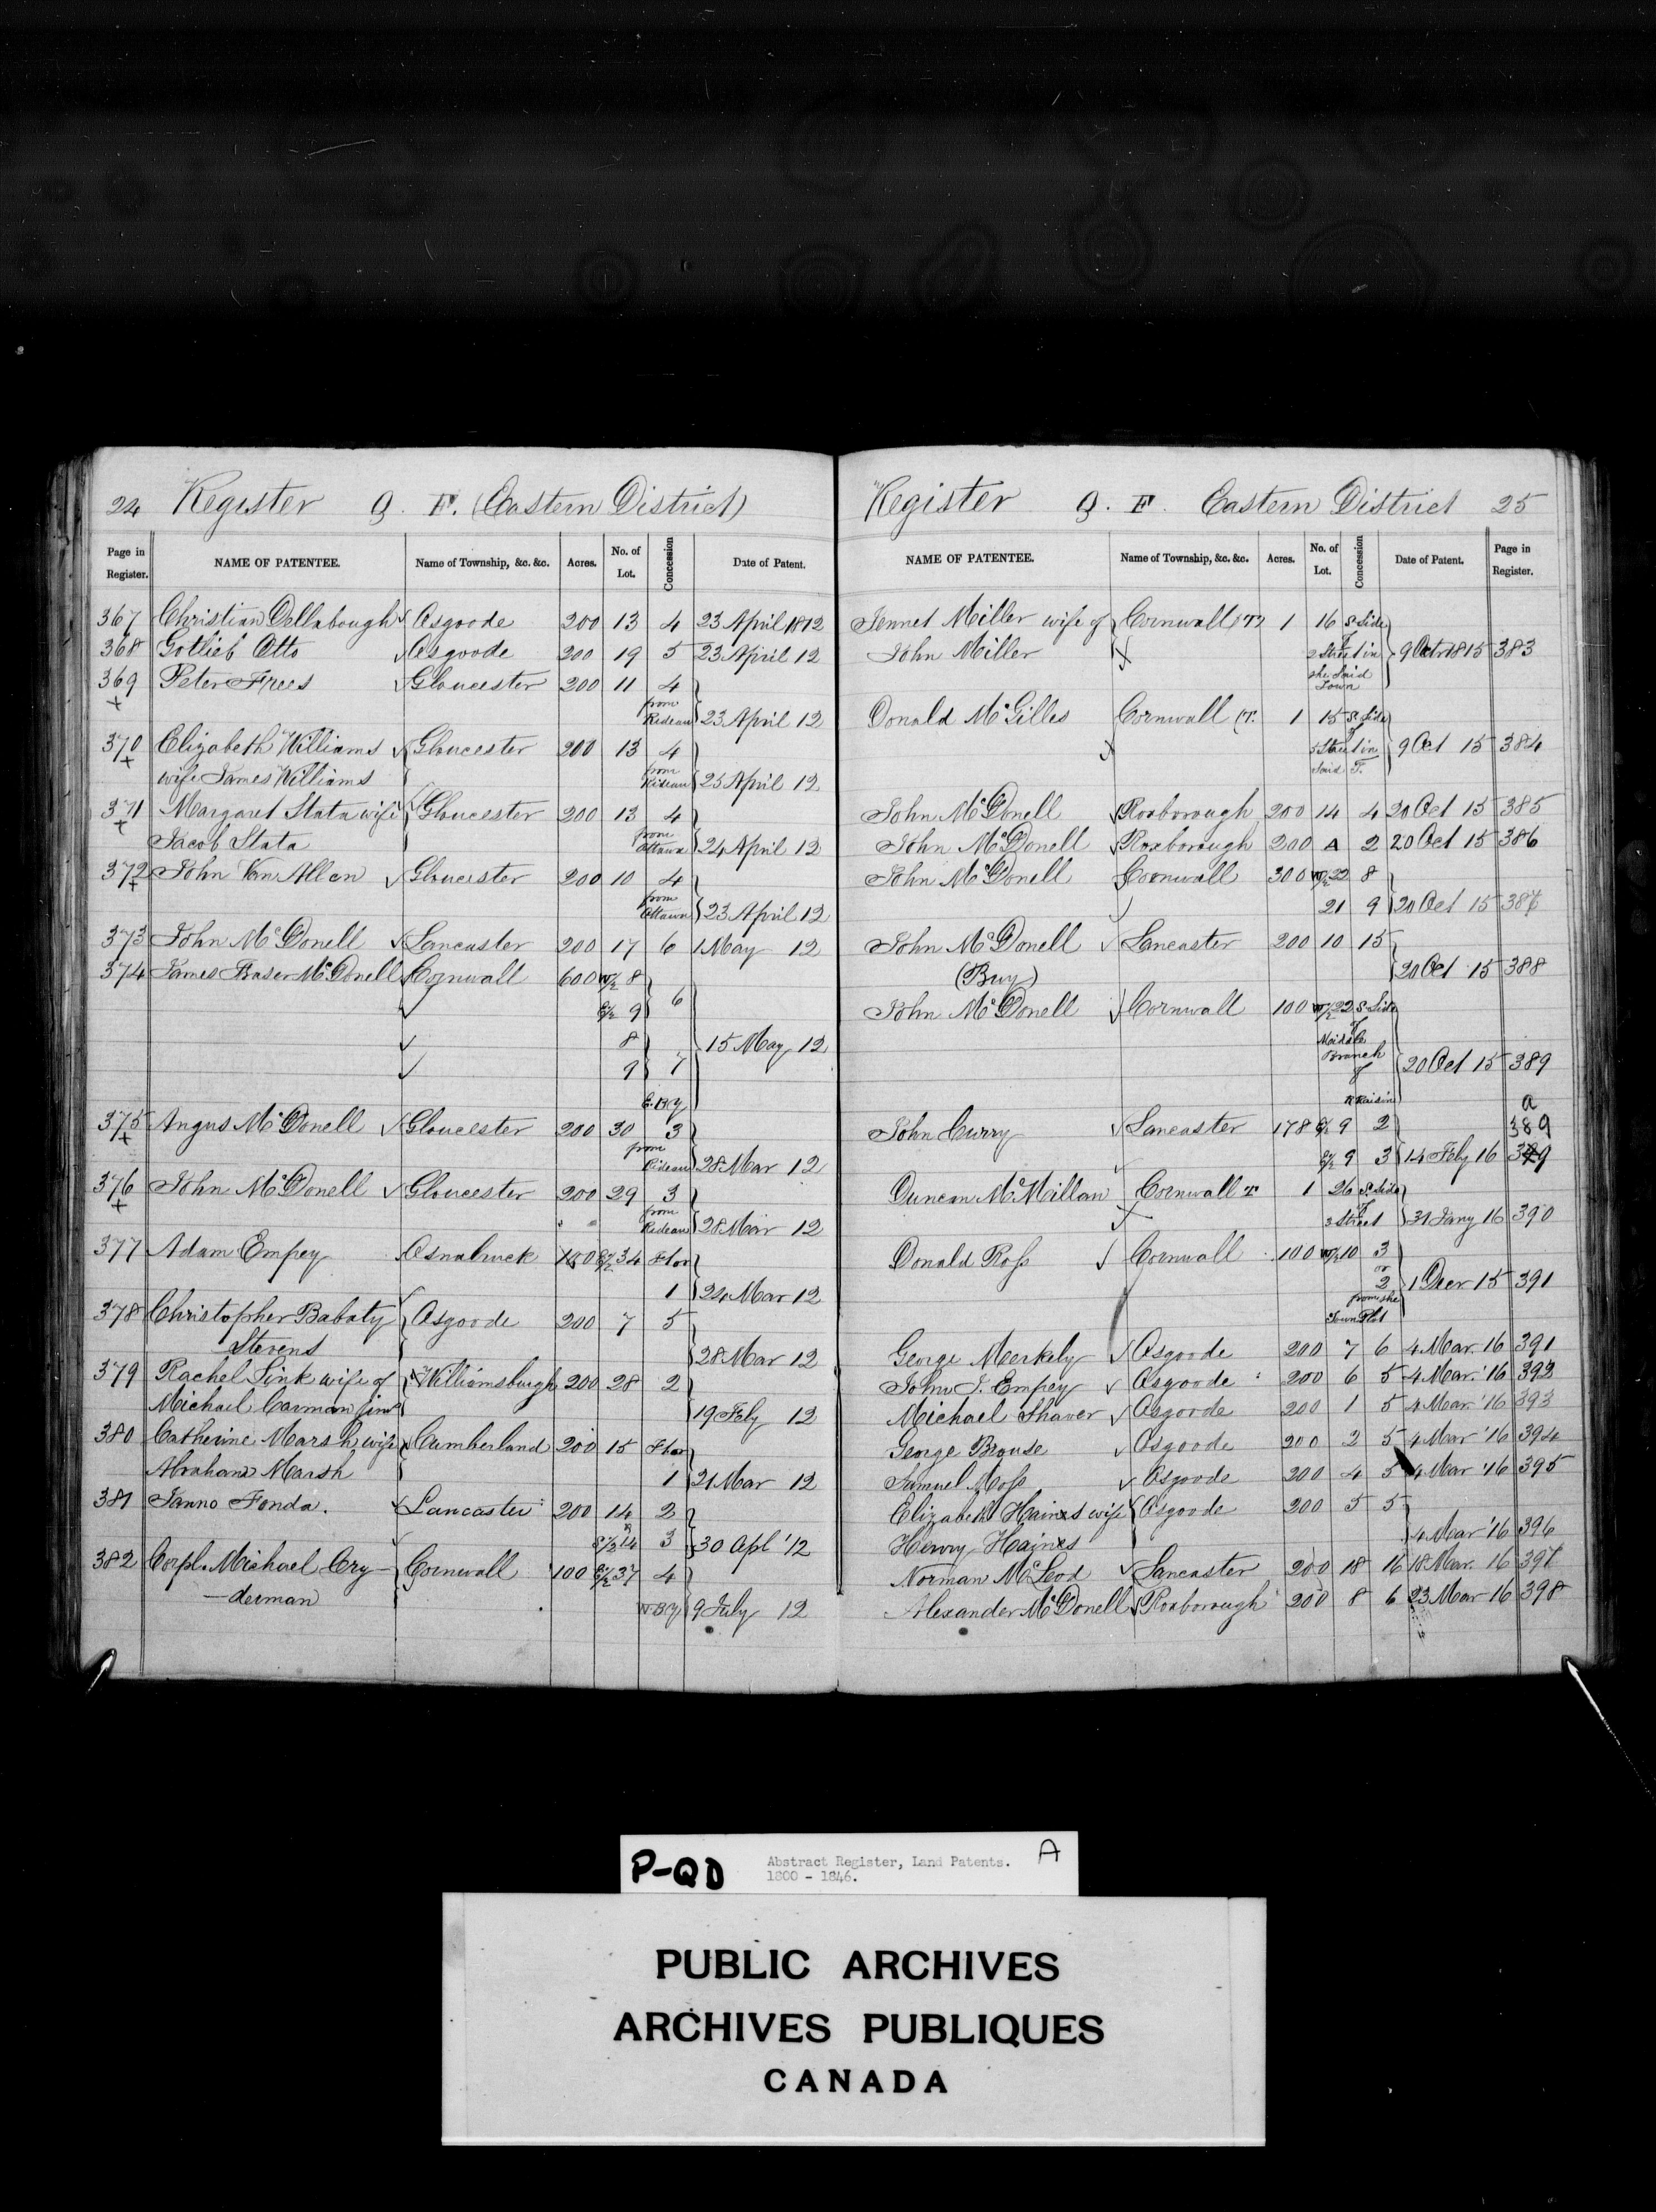 24 Register G. F. (Eastern District)
Page in Register. NAME OF PATENTEE. Name of Township, &c. &c. Acres. No. of Lot. Concession Date of Patent.
367 Christian Dellabough Osgoode 200 13 4 23 April 1812
368 Gotlieb Otto Osgoode 200 19 5 23 April 12
369 Peter Frees Gloucester 200 11 4
+ from Rideau 23 April 12
370 Elizabeth Williams Gloucester 200 13 4
+ wife James Williams from Rideau 25 April 12
371 Margaret Stata wife Gloucester 200 13 4
+ Jacob Stata from Ottawa 24 April 12
372 John Van Allen Gloucester 200 10 4
+ from Ottawa 23 April 12
373 John McDonell Lancaster 200 17 6 1 May 12
374 James Fraser McDonell Cornwall 600 W½ 8
E½ 9 6
8 15 May 12
9 7
E. By
375 Angus McDonell Gloucester 200 30 3
+ from Rideau 28 Mar 12
376 John McDonell Gloucester 200 29 3
+ from Rideau 28 Mar 12
377 Adam Empey Osnabruck 100 E½ 34 F tor
1 24 Mar 12
378 Christopher Babaty Osgoode 200 7 5
Stevens 28 Mar 12
379 Rachel Link wife of Williamsburgh 200 28 2
Michael Carman junr 19 Feby 12
380 Catherine Marsh wife Cumberland 200 15 F tor
Abraham Marsh 1 21 Mar 12
381 Janno Fonda. Lancaster 200 14 2
E½ 14 3 30 Apl '12
382 Corpl. Michael Cry- Cornwall 100 E½ 37 4
-derman W. By 9 July 12
Register G. F. Eastern District 25
NAME OF PATENTEE. Name of Township, &c. &c. Acres. No. of Lot. Concession Date of Patent. Page in Register.
Jennet Miller wife of Cornwall (T) 1 16 S. Side
John Miller of 2 Street in the Said Town 9 Oct 1815 383
Donald McGilles Cornwall (T. 1 15 S. Side
of 5 Street in Said T. 9 Oct 15 384
John McDonell Roxborough 200 14 4 20 Oct 15 385
John McDonell Roxborough 200 A 2 20 Oct 15 386
John McDonell Cornwall 300 W½ 22 8
21 9 20 Oct 15 387
John McDonell Lancaster 200 10 15
(Buy) 20 Oct 15 388
John McDonell Cornwall 100 W½ 22 S. Side
of Middle Branch of R Raisin 20 Oct 15 389
a
John Curry Lancaster 178 E½ 9 2 389
E½ 9 3 14 Feby 16 389
Duncan McMillan Cornwall T 1 26 S. Side
of 3 Street 31 Jany 16 390
Donald Ross Cornwall 100 W½ 10 3
or 2 from the Town Plot 1 Decr 15 391
George Merkely Osgoode 200 7 6 4 Mar. 16 391
John J. Empey Osgoode 200 6 5 4 Mar. '16 392
Michael Shaver Osgoode 200 1 5 4 Mar '16 393
George Brouse Osgoode 200 2 5 4 Mar '16 394
Samuel Moss Osgoode 200 4 5 4 Mar '16 395
Elizabeth Haines wife Osgoode 200 5 5
Henry Haines 4 Mar '16 396
Norman McLeod Lancaster 200 18 16 18 Mar. 16 397
Alexander McDonell Roxborough 200 8 6 23 Mar 16 398
P-QD Abstract Register, Land Patents. A
1800 - 1846.
PUBLIC ARCHIVES
ARCHIVES PUBLIQUES
CANADA